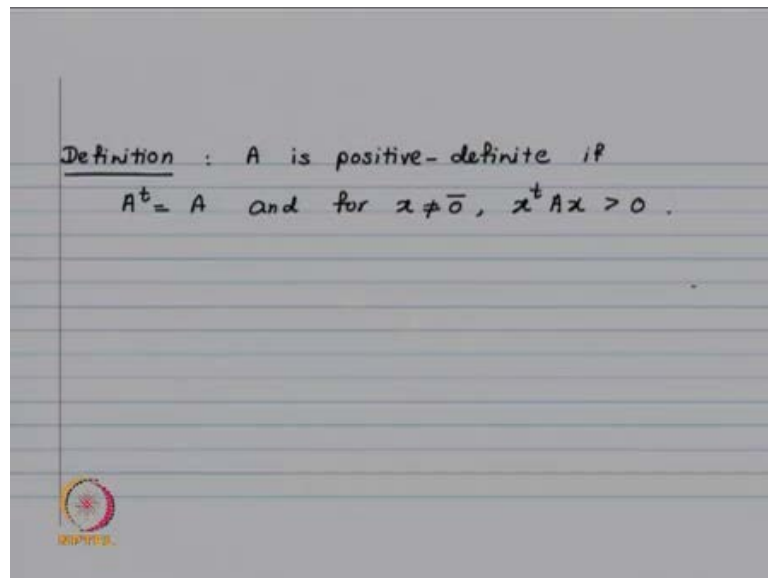 Definition : A is positive-definite if
Aᵗ = A and for x ≠ 0̅, xᵗAx > 0 .
NPTEL